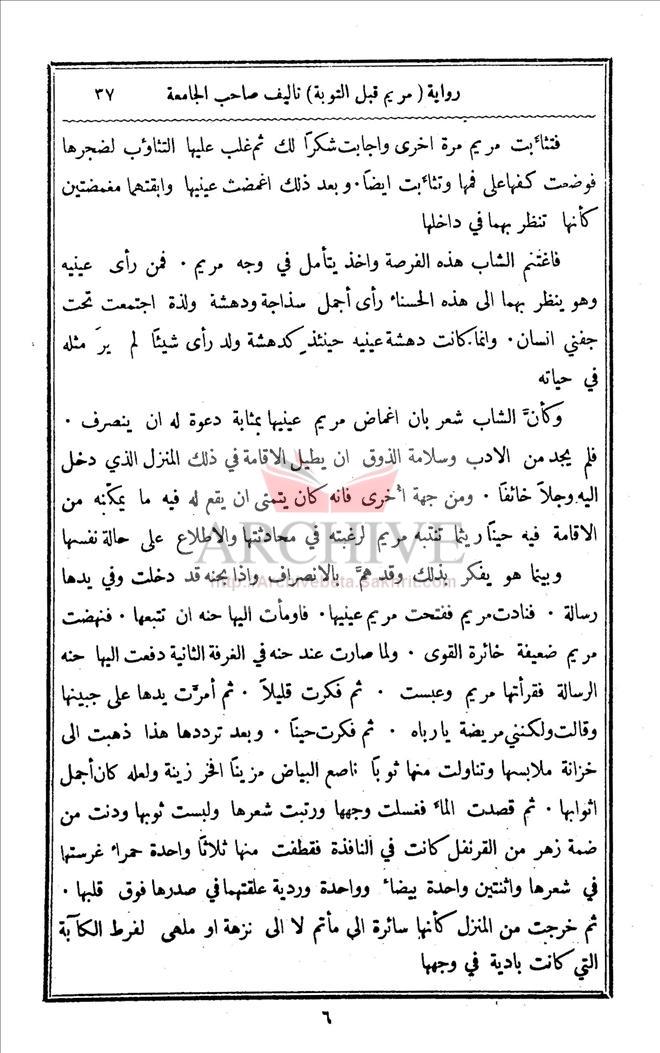 رواية ( مريم قبل التوبة ) تاليف صاحب الجامعة ٣٧
فتثاءَبت مريم مرة اخرى واجابت شكرًا لك ثم غلب عليها التثاوُب لضجرها
فوضعت كفها على فمها وتثاءَبت ايضًا. وبعد ذلك اغمضت عينيها وابقتهما مغمضتين
كأنها تنظر بهما في داخلها
فاغتنم الشاب هذه الفرصة واخذ يتأمل في وجه مريم . فمن رأى عينيه
وهو ينظر بهما الى هذه الحسناء رأى أجمل سذاجة ودهشة ولذة اجتمعت تحت
جفني انسان. وانما كانت دهشة عينيه حينئذٍ كدهشة ولد رأى شيئًا لم يرَ مثله
في حياته
وكأنَّ الشاب شعر بان اغماض مريم عينيها بمثابة دعوة له ان ينصرف .
فلم يجد من الادب وسلامة الذوق ان يطيل الاقامة في ذلك المنزل الذي دخل
اليه وجلاً خائفًا . ومن جهة أخرى فانه كان يتمنى ان يقع له فيه ما يمكّنه من
الاقامة فيه حينًا ريثما تنتبه مريم لرغبته في محادثتها والاطلاع على حالة نفسها
وبينما هو يفكر بذلك وقد همَّ بالانصراف واذا بحنه قد دخلت وفي يدها
رسالة . فنادت مريم ففتحت مريم عينيها. فاومأت اليها حنه ان تتبعها. فنهضت
مريم ضعيفة خائرة القوى . ولما صارت عند حنه في الغرفة الثانية دفعت اليها حنه
الرسالة فقرأتها مريم وعبست . ثم فكرت قليلاً . ثم أمرَّت يدها على جبينها
وقالت ولكنني مريضة يا رباه . ثم فكرت حينًا . وبعد ترددها هذا ذهبت الى
خزانة ملابسها وتناولت منها ثوبًا ناصع البياض مزينًا افخر زينة ولعله كان أجمل
اثوابها . ثم قصدت الماءَ فغسلت وجهها ورتبت شعرها ولبست ثوبها ودنت من
ضمة زهر من القرنفل كانت في النافذة فقطفت منها ثلاثًا واحدة حمراء غرستها
في شعرها واثنتين واحدة بيضاء وواحدة وردية علقتهما في صدرها فوق قلبها .
ثم خرجت من المنزل كأنها سائرة الى مأتم لا الى نزهة او ملهى لفرط الكآبة
التي كانت بادية في وجهها
٦
ARCHIVE
http://Archivebeta.Sakhrit.com